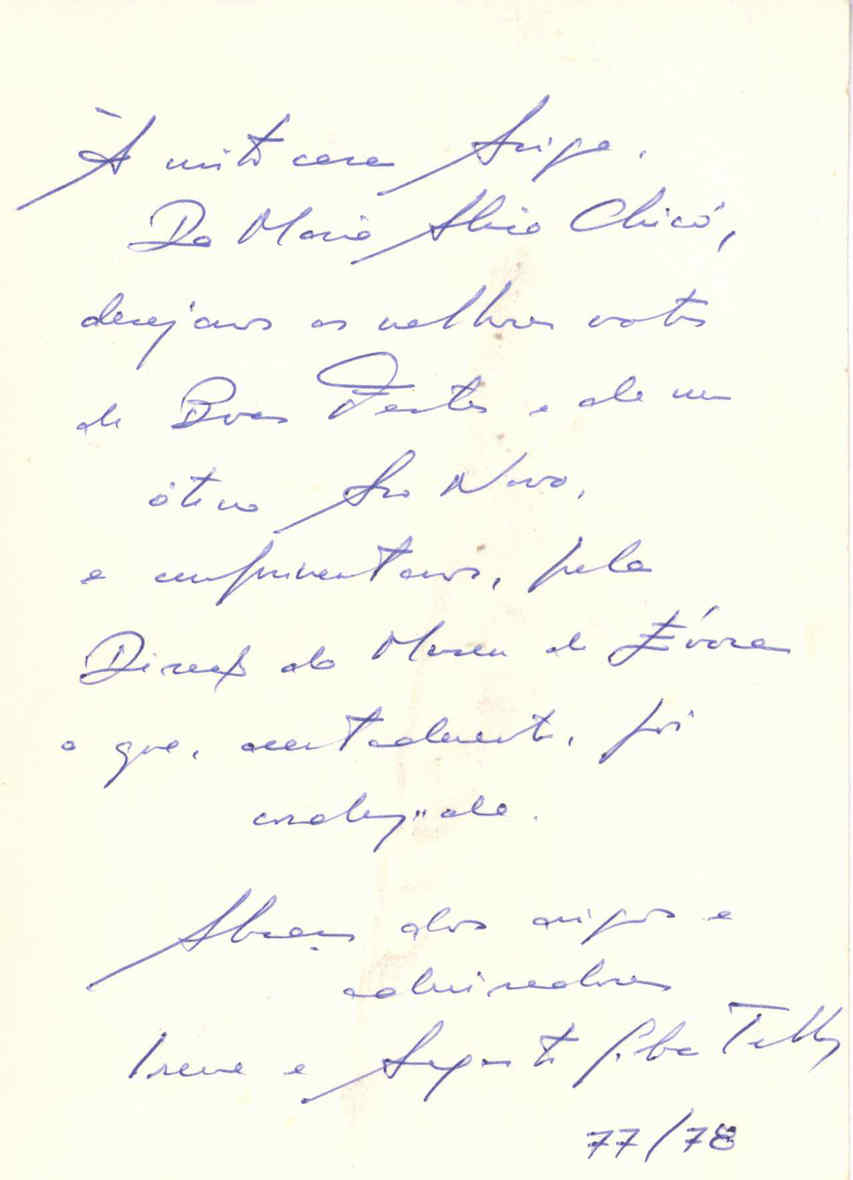 À muito cara Amiga.
Da Maria Alice Chicó,
desejamos os melhores votos
de Boas Festas e de um
ótimo Ano Novo,
e cumprimentamos, pela
Direcção do Museu de Évora
o que, acertadamente, foi
Abraços dos amigos e
admiradores
Irene e Augusto Silva Telles
77/78